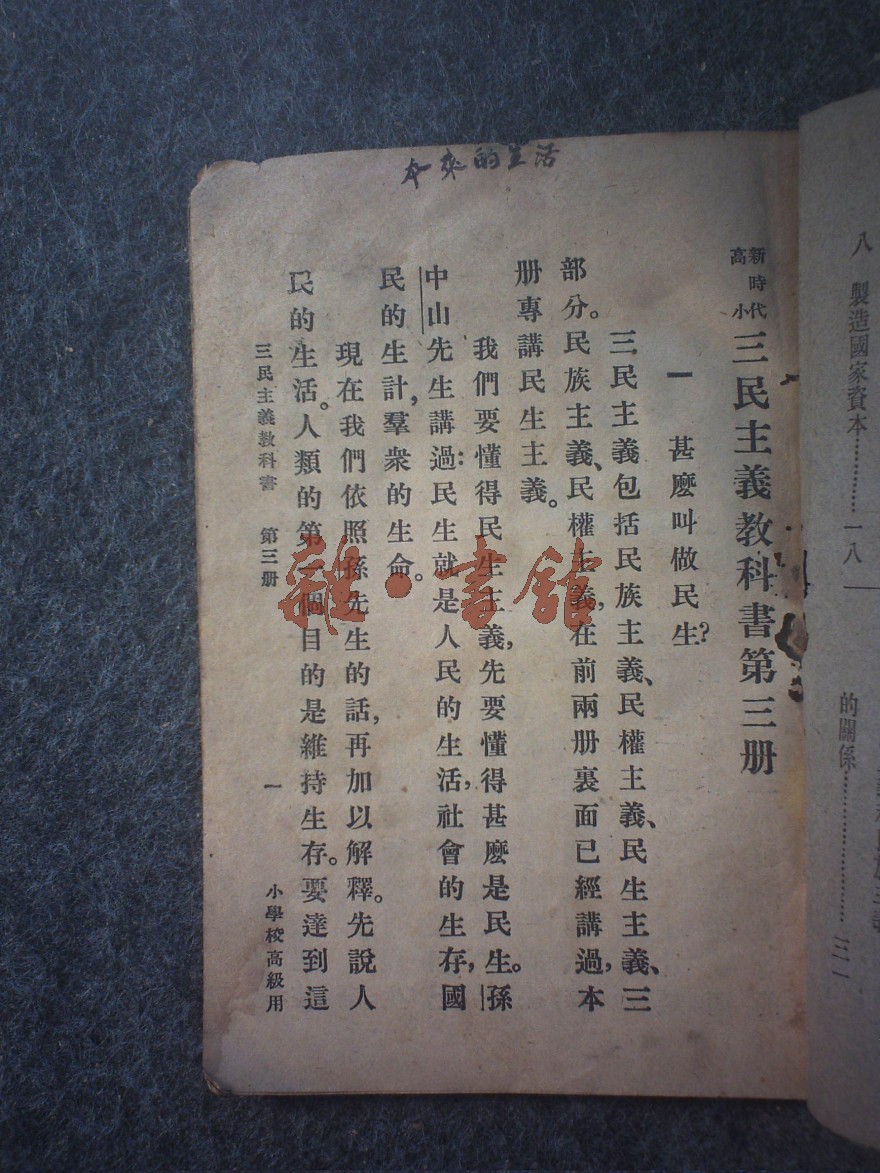 本來的生活
新時代
高小
三民主義教科書第三册
一 甚麽叫做民生？
三民主義包括民族主義、民權主義、民生主義、三
部分。民族主義、民權主義，在前兩册裏面已經講過，本
册專講民生主義。
我們要懂得民生主義，先要懂得甚麽是民生。孫
中山先生講過：民生就是人民的生活，社會的生存，國
民的生計，羣衆的生命。
現在我們依照孫先生的話，再加以解釋。先說人
民的生活。人類的第一個目的是維持生存。要達到這
三民主義教科書 第三册 一 小學校高級用
八 製造國家資本…………一八
的關係……………………三一
雜·書館